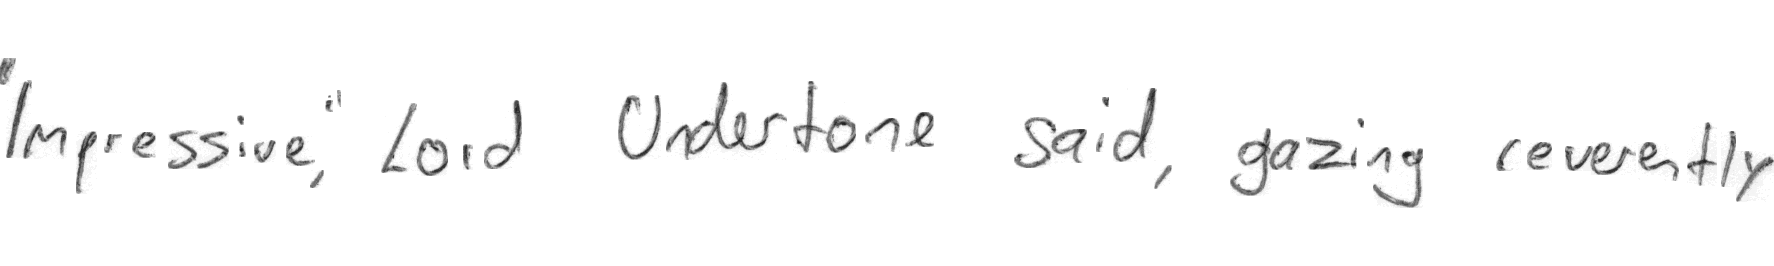 "Impressive," Lord Undertone said, gazing reverently